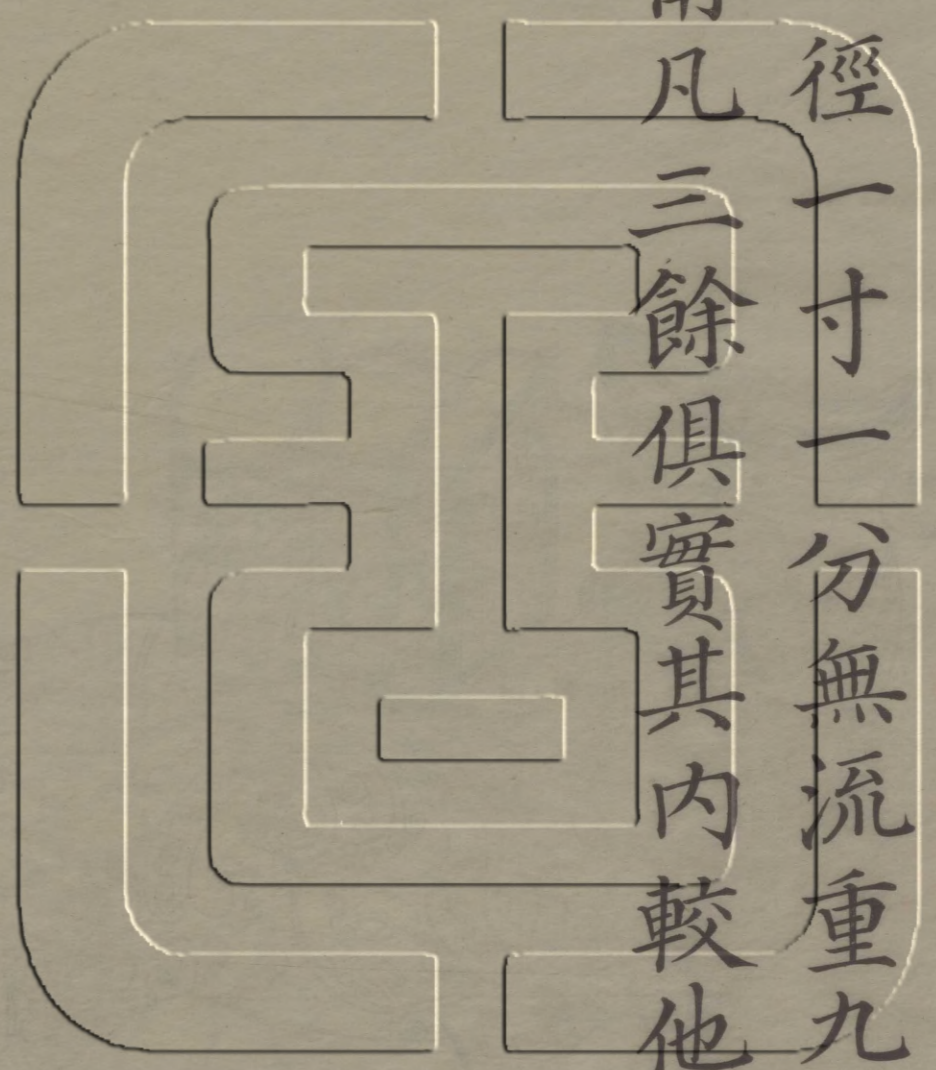 徑一寸一分無流重九
凡三餘俱實其内較他